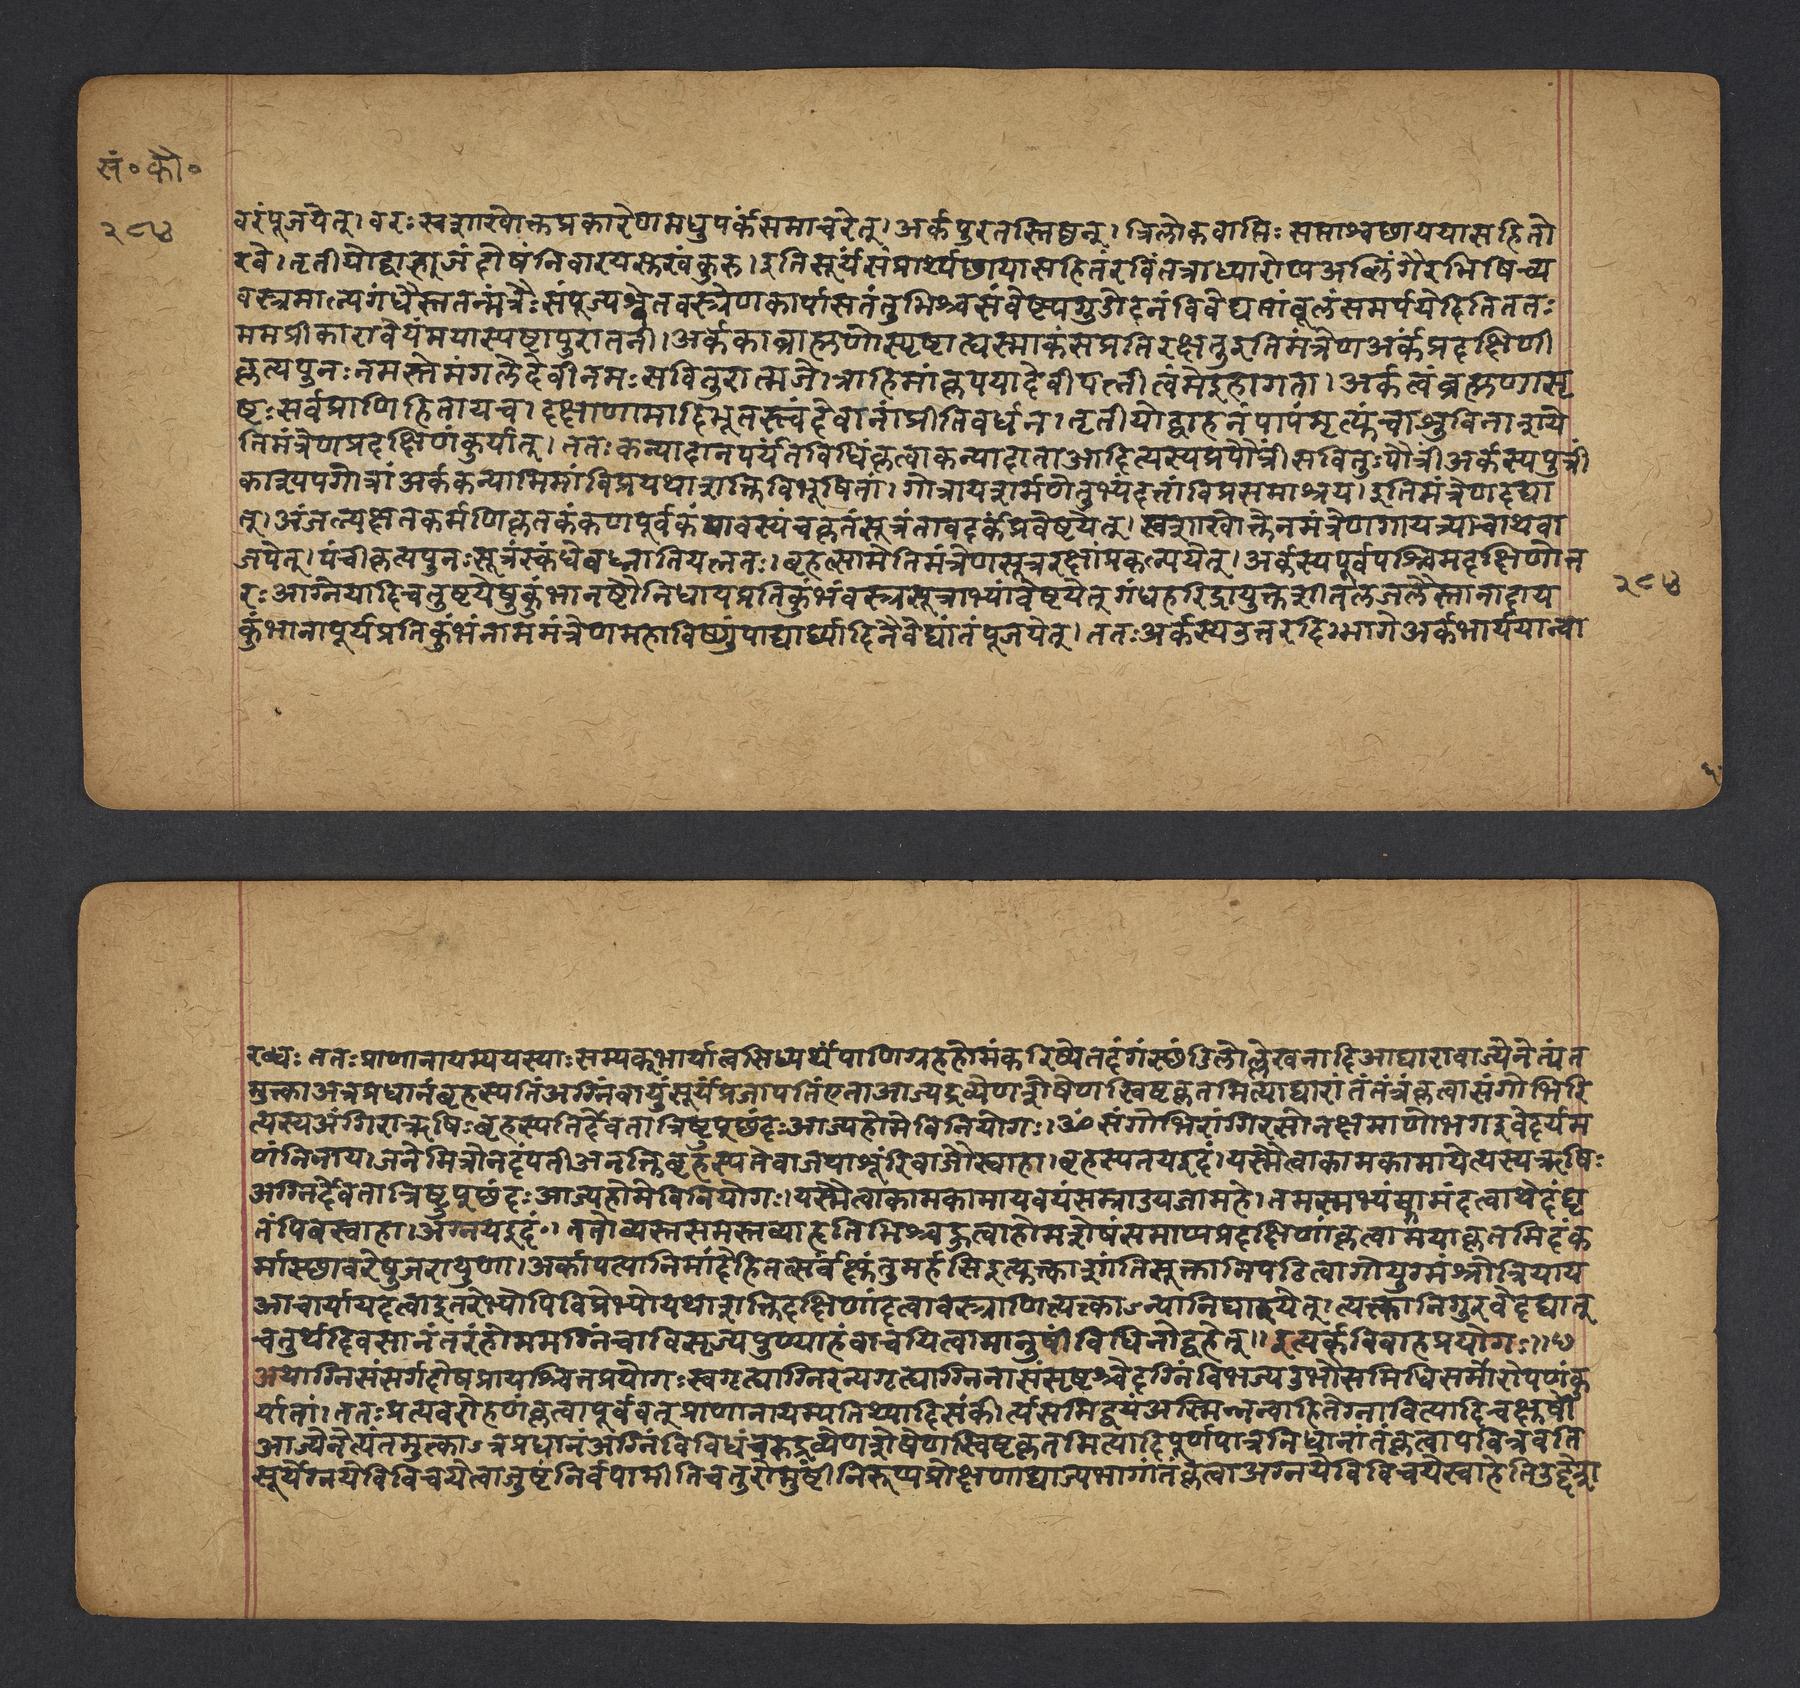 सं॰ कौ॰
२८५
वरंपूजयेत्। वरः स्वशाखोक्तप्रकारेणमधुपर्कंसमाचरेत्। अर्कपुरतस्तिष्ठन्। त्रिलोकवासिः सप्ताश्वछाययासहितो
रवे। तृतीयोद्वाहाजंदोषंनिवारयसुखंकुरु। इतिसूर्यंसंप्रार्थ्यछायासहितंरविंतत्राध्यारोप्यअब्लिंगैरभिषिच्य
वस्त्रमाल्यगंधैस्ततन्मंत्रैः संपूज्यश्वेतवस्त्रेणकार्पासतंतुभिश्चसंवेष्ट्यगुडोदनंविवेद्यतांबूलंसमर्पयेदितिततः
ममप्रीकारावेयंमयास्पष्टापुरातनी। अर्ककाब्राह्मणोस्पृष्टात्यस्माकंसप्रतिरक्षतुइतिमंत्रेणअर्कंप्रदक्षिणी
कृत्यपुनःनमस्तेमंगलेदेवीनमःसवितुरात्मजे। त्राहिमांकृपयादेवीपत्नीत्वंमेइहागता। अर्कत्वंब्रह्मणासृ
ष्टःसर्वप्राणिहितायच। वृक्षाणामादिभूतस्त्वंदेवानांप्रीतिवर्धन। तृतीयोद्वाहनंपापंमृत्युंचाशुविनाशये
तिमंत्रेणप्रदक्षिणांकुर्यात्। ततःकन्यादानपर्यंतंविधिंकृत्वाकन्यादाताआदित्यस्यप्रपौत्रीं सवितुःपौत्रीअर्कस्यपुत्रीं
काश्यपगोत्रांअर्ककन्यामिमांविप्रयथाशक्तिविभूषितां। गोत्रायशर्मणेतुभ्यंदत्तांविप्रसमाश्रय। इतिमंत्रेणदद्या
त्। अंजल्यक्षतकर्मणिकृतकंकणपूर्वकंयावस्यंचकृतंसूत्रंतावदर्कंप्रवेष्टयेत्। स्वशाखोक्तेनमंत्रेणगायत्र्याचाथवा
जपेत्। पंचीकृत्यपुनःसूत्रंस्कंधेबध्नातियत्नतः। बृहत्सामेतिमंत्रेणसूत्ररक्षांप्रकल्पयेत्। अर्कस्यपूर्वपश्चिमदक्षिणोत्त
रःआग्नेयादिचतुष्टयेषुकुंभानष्टौनिधायप्रतिकुंभंवस्त्रसूत्राभ्यांवेष्टयेत्गंधहरिद्रायुक्तशीतलजलैस्तानादाय
२८५
कुंभानापूर्यप्रतिकुंभंनाममंत्रेणमहाविष्णुंपाद्यार्ध्यादिनैवेद्यांतंपूजयेत्। ततःअर्कस्यउत्तरदिग्भागेअर्कभार्ययान्वा
रब्धः ततःप्राणानायम्ययस्याःसम्यक्भार्यात्वसिध्यर्थंपाणिग्रहहोमंकरिष्येतदंगंस्छंडिलोल्लेखनादिआघारावाज्येनेत्यंत
मुक्त्काअत्रप्रधानंबृहस्पतिंअग्निंवायुंसूर्यंप्रजापतिंएताआज्यद्रव्येणशेषेणस्विष्टकृतमित्याद्यारांतंतंत्रंकृत्वासंगोभिरि
त्यस्यअंगिराऋषिःबृहस्पतिर्देवतात्रिष्टुप्छंदःआज्यहोमेविनियोगः। ॐ संगोभिरांगिरसोनक्षमाणोभगइवेदर्यम
णंनिनाय। जनेमित्रोनदंपतीअनक्तिबृहस्पतेवाजयाशूंरिवाजौस्वाहा। बृहस्पतयइदं। यस्मैत्वाकामकामायेत्यस्यऋषिः
अग्निर्देवतात्रिष्टुप्छंदःआज्यहोमेविनियोगः। यस्मैत्वाकामकामायवयंसम्राड्यजामहे। तमस्मभ्यंकामंदत्वाथेदंघृ
तंपिबस्वाहा। अग्नयइदं॰। ततोव्यस्तसमस्तव्याहृतिभिश्चहुत्वाहोमशेषंसमाप्यप्रदक्षिणांकृत्वामयाकृतमिदंक
र्मास्छावरेषुजरायुणा। अर्कापत्यानिमांदेहितत्सर्वंक्षंतुमर्हसिइत्युक्त्काशंगंतिसूक्तानिपठित्वागोयुग्मंश्रोत्रियाय
आचार्यायदत्वाइतरेभ्योपिविप्रेभ्योयथाशक्तिदक्षिणांदत्वावस्त्राणित्यक्त्काऽन्यानिधारयेत्। त्यक्त्कानिगुरवेदद्यात्
चतुर्थदिवसानंतरंहोममग्निंचाविसृज्यपुण्याहंवाचयित्वामानुषीविधिनोद्वहेत्॥ इत्यर्कविवाहप्रयोगः॥७
अथाग्निसंसर्गदोषप्रायश्चित्तप्रयोगःस्वगृत्याग्निरन्यगृत्याग्निनासंसृष्टश्चेदग्निंविभज्यउभौसमिधिसमारोपणंकु
र्यातां। ततःप्रत्यवरोहणंकृत्वापूर्ववत्प्राणानायम्यतिथ्यादिसंकीर्त्यसमिद्वयंअस्मिन्नन्वाहितेग्नावित्यादिचक्षुषी
आज्येनेत्यंतमुक्त्काऽत्रप्रधानंअग्निंविविधंचरुद्रव्येणशेषेणस्विष्टकृतमित्यादिपूर्णपात्रनिधानांतंकृत्वापवित्रवति
सूर्येग्नयेविविचयेत्वाजुष्टंनिर्वपामीतिचतुरोमुष्टींनिरुप्यप्रोक्षणाद्याज्यभागांतंकृत्वाअग्नयेविविचयेस्वाहेतिउद्देशा